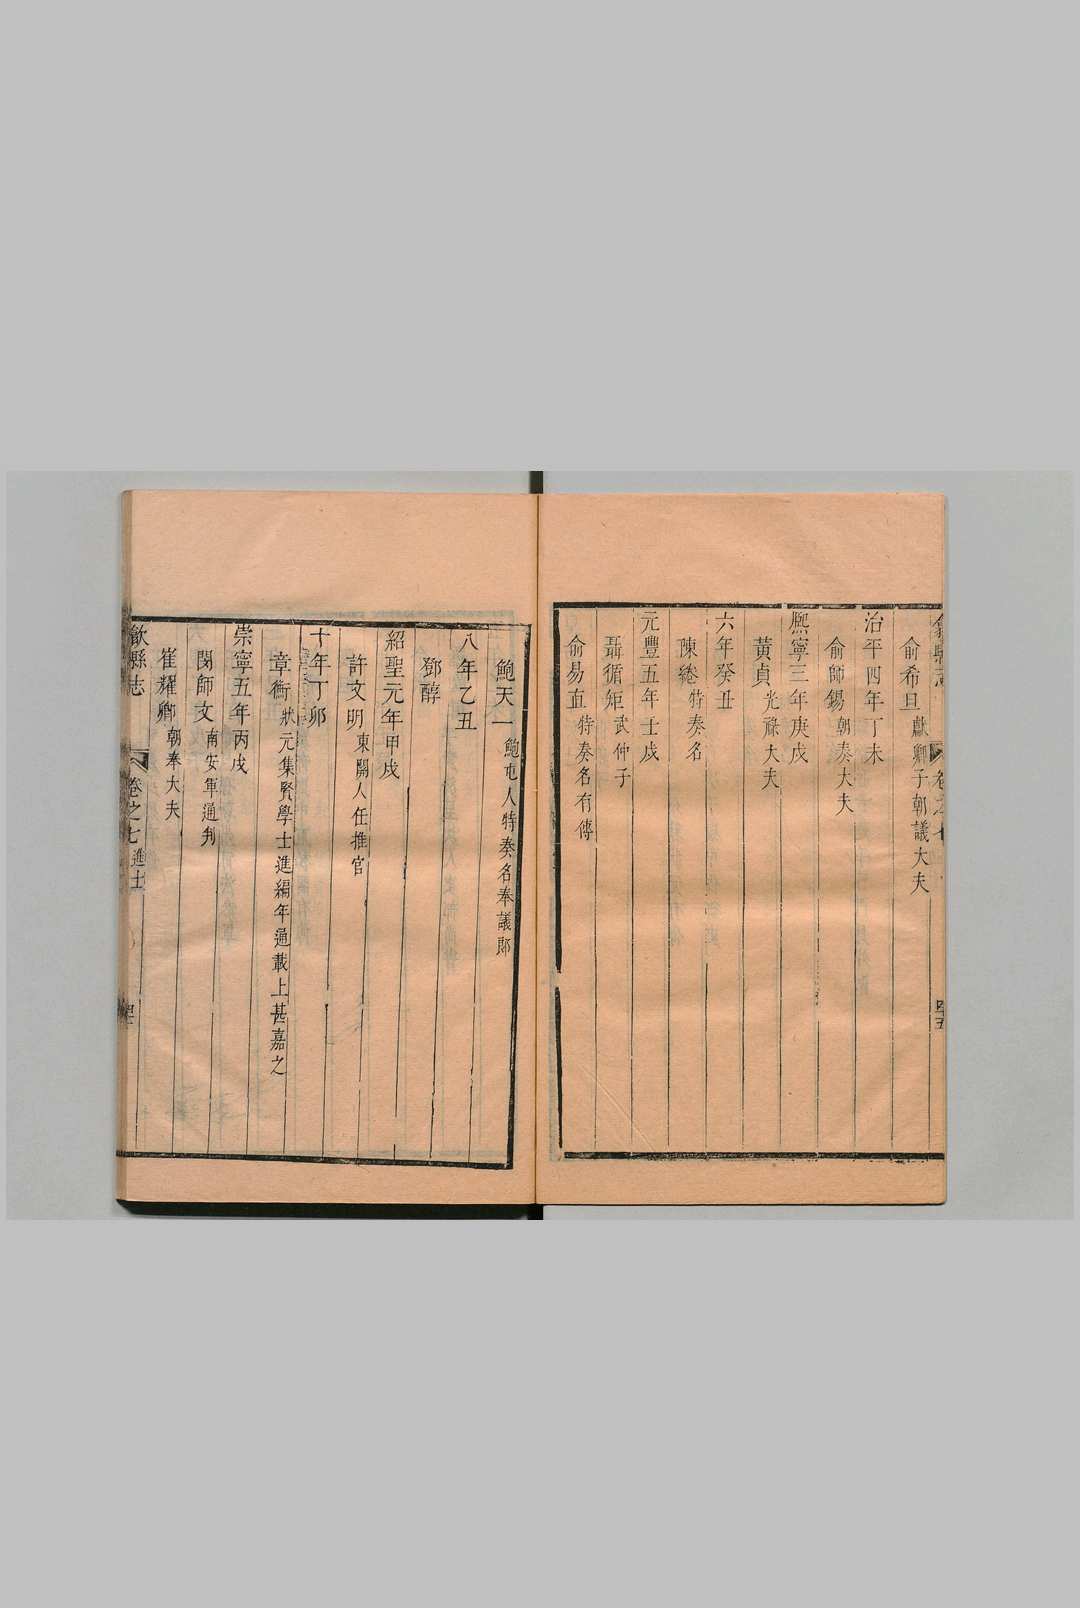 俞希旦獻卿子朝議大夫
治平四年丁未
俞師錫朝奏大夫
熈寧三年庚戍
黃貞光祿大夫
六年癸丑
陳綣特奏名
元豐五年壬戍
聶循矩武仲子
俞易直特奏名有傳
鮑天一鮑屯人特奏名奉議郎
八年乙丑
鄧醇
紹聖元年甲戍
許文明東關人任推官
十年丁卯
章衡狀元集賢學士進編年通載上甚嘉之
崇寧五年丙戍
閔師文南安軍通判
崔耀卿朝奉大夫
歙縣志 卷之七進士